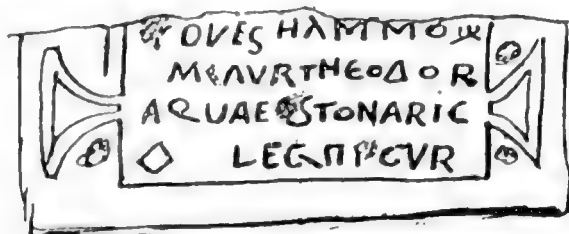 DVES HAMMO
M AVR THEODOR
AQUAE STONARIC
LEG II P CVR